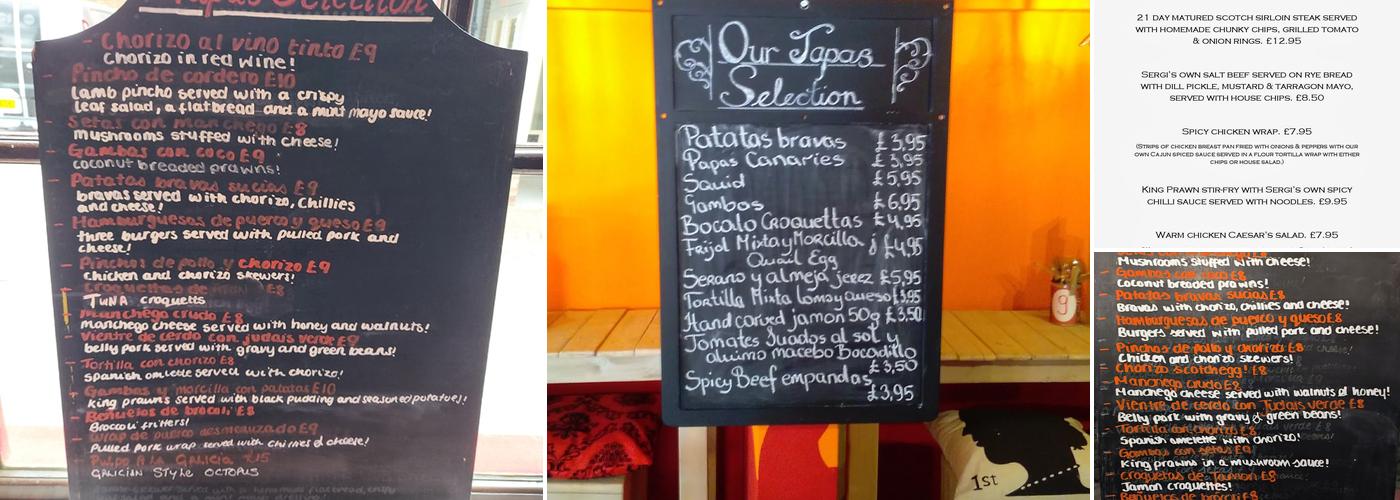 Tapas Selection
- Chorizo al vino tinto £9
Chorizo in red wine!
- Pincho de cordero £10
Lamb pincho served with a crispy
leaf salad, a flatbread and a mint mayo sauce!
- Setas con manchego £8
mushrooms stuffed with cheese!
- Gambas con coco £9
coconut breaded prawns!
- Patatas bravas sucias £9
bravas served with chorizo, Chillies
and cheese!
- Hamburguesas de puerco y queso £9
three burgers served with pulled pork and
cheese!
- Pinchos de pollo y chorizo £9
chicken and chorizo skewers!
- Croquettas de £8
TUNA croquetts
- Manchego crudo £8
manchego cheese served with honey and walnuts!
- Vientre de cerdo con judais verde £9
belly pork served with gravy and green beans!
- Tortilla con chorizo £8
spanish omlette served with chorizo!
- Gambas y morcilla con patatas £10
king prawns served with black pudding and seasoned potatoe!
- Beñuelos de brocoli £8
Broccoli fritters!
- wrap de puerco desmenuzado £9
Pulled pork wrap served with chimei d cheese!
- Pulpo A LA GALICIA £15
GALICIAN STYLE OCTOPUS
Our Tapas
Selection
Patatas bravas £3,95
Papas Canaries £3,95
Squid £5,95
Gambas £6,95
Bocalo Croquettas £4,95
Frijol Mixta y Morcilla £4,95
Quail Egg
Serano y almeja jerez £5,95
Tortilla Mixta lomo y queso £3.95
Hand corved jamon 50g £3.50
Tomates Suados al sol y
aluimo macebo Bocadillo
£3,50
Spicy Beef empandas
£3,95
9
1st
21 DAY MATURED SCOTCH SIRLOIN STEAK SERVED
WITH HOMEMADE CHUNKY CHIPS, GRILLED TOMATO
& ONION RINGS. £12.95
SERGI'S OWN SALT BEEF SERVED ON RYE BREAD
WITH DILL PICKLE, MUSTARD & TARRAGON MAYO,
SERVED WITH HOUSE CHIPS. £8.50
SPICY CHICKEN WRAP. £7.95
(STRIPS OF CHICKEN BREAST PAN FRIED WITH ONIONS & PEPPERS WITH OUR
OWN CAJUN SPICED SAUCE SERVED IN A FLOUR TORTILLA WRAP WITH EITHER
CHIPS OR HOUSE SALAD.)
KING PRAWN STIR-FRY WITH SERGI'S OWN SPICY
CHILLI SAUCE SERVED WITH NOODLES. £9.95
WARM CHICKEN CAESAR'S SALAD. £7.95
Mushrooms stuffed with cheese!
- Gambas con coco £8
Coconut breaded prawns!
- Patatas bravas sucias £8
Bravas with chorizo, chillies and cheese!
- Hamburguesas de puerco y queso £8
Burgers served with pulled pork and cheese!
- Pinchos de pollo y chorizo £8
Chicken and chorizo skewers!
- Chorizo scotchegg! £8
- Manchego crudo £8
Manchego cheese served with walnuts of honey!
- Vientre de cerdo con Judais verde £8
Belly pork with gravy & green beans!
- Tortilla con chorizo £8
Spanish omelette with chorizo!
- Gambas con setas £9
King prawns in a mushroom sauce!
- croquetas de Jamon £8
Jamon croquettes!
- Beñuelos de